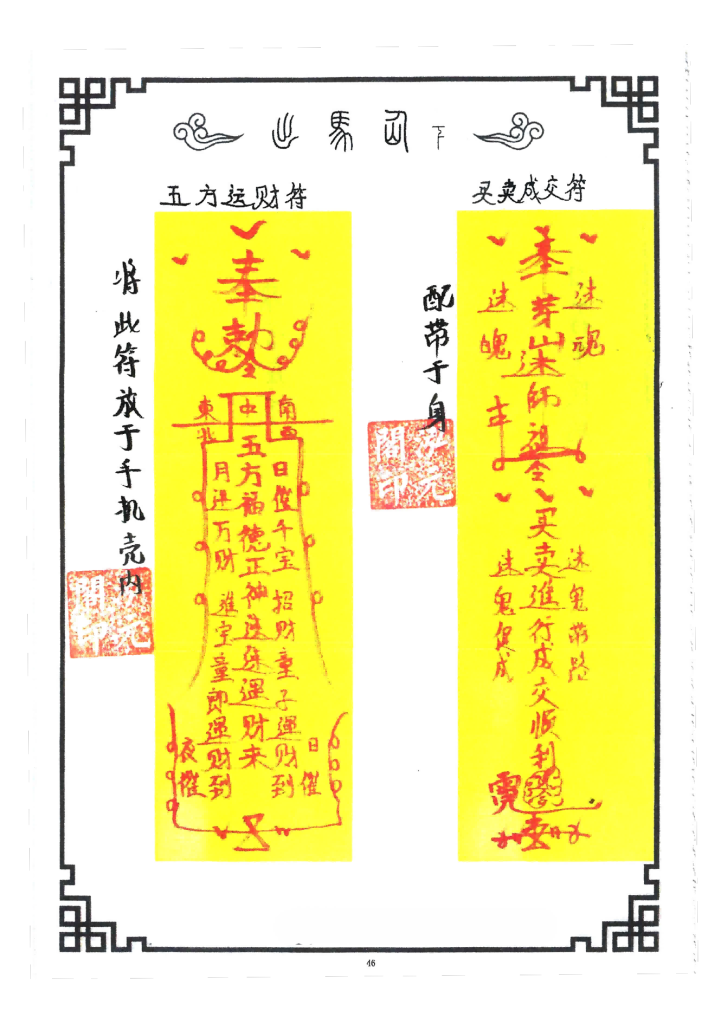 出馬仙下
五方运财符
将此符放于手机壳内
奉
勅令
東 中 南
北 西
五方福德正神速来運财来
日催千宝 招财童子運财到
月进万财 進宝童郎運财到
日催
夜催
买卖成交符
配带于身
奉
茅山迷師祖令
迷魂
迷魄
买卖進行成交顺利
迷鬼带路
迷鬼促成
46